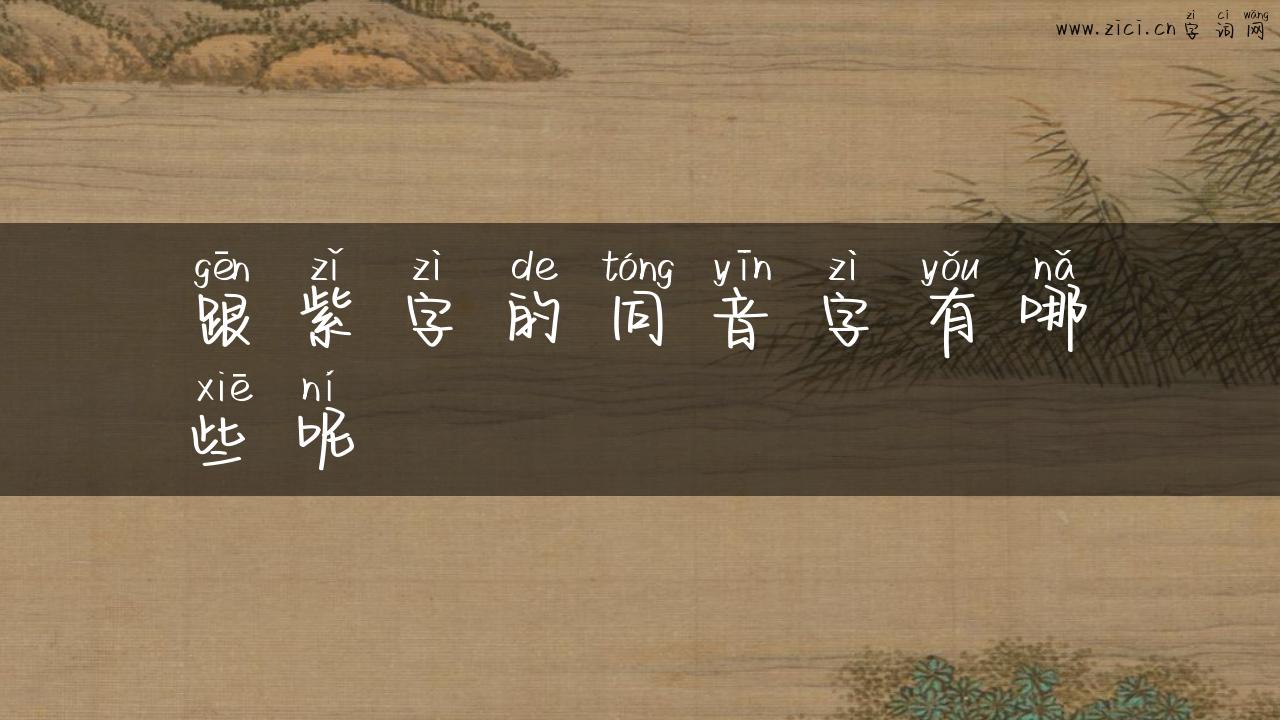 zì cí wǎng
www.zici.cn 字词网
gēn zǐ zì de tóng yīn zì yǒu nǎ
跟紫字的同音字有哪
xiē ní
些呢